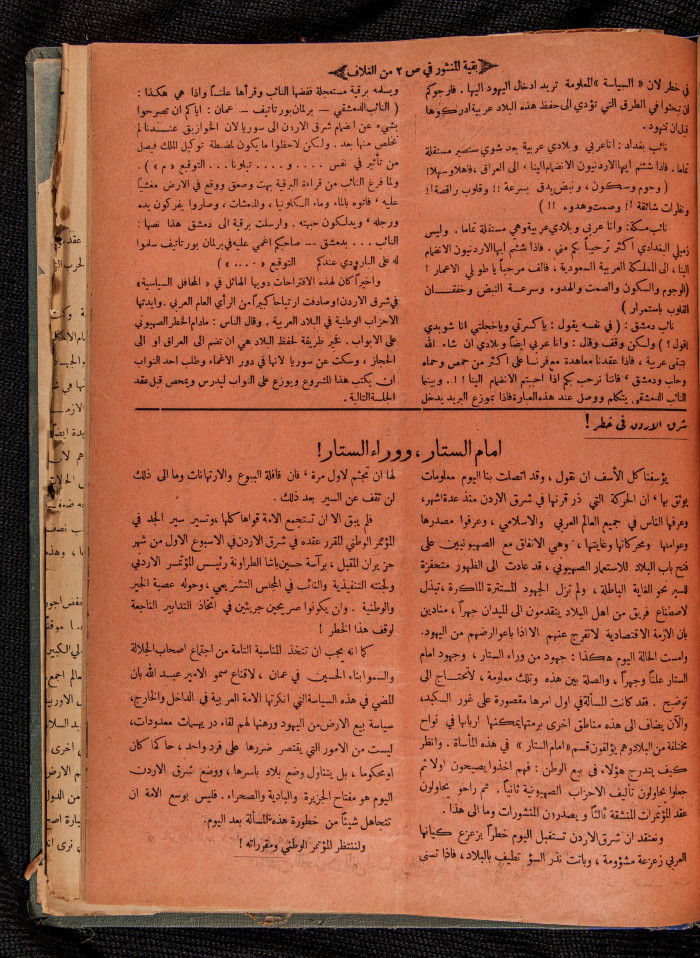 بقية المنشور في ص ٢ من الغلاف
في خطر لان « السياسة » المعلومة تريد ادخال اليهود اليها . فارجوكم
ان تبحثوا في الطرق التي تؤدي الى حفظ هذه البلاد عربية أدركوها
قبل ان تتهود.
نائب بغداد : انا عربي وبلادي عربية بعد شوي ستصير مستقلة
تماما . فاذا شئتم ايها الاردنيون الانضمام الينا ، الى العراق ، فاهلا وسهلا!
( وجوم وسكون ، ونبض يدق بسرعة !! وقلوب راقصة !!
ونظرات شائقة !! وصمت وهدوء !! )
نائب مكة : وانا عربي وبلادي عربية وهي مستقلة تماما . وليس
زميلي البغدادي أكثر ترحيباً بكم مني . فاذا شئتم ايها الاردنيون الانضمام
الينا ، الى المملكة العربية السعودية ، فالف مرحباً يا طويلي الاعمار !
(الوجوم والسكون والصمت والهدوء وسرعة النبض وخفقان
القلوب باستمرار )
نائب دمشق : ( في نفسه يقول : يا كسرتي وياخجلتي انا شو بدي
اقول ؟ ) ولكن وقف وقال : وانا عربي ايضاً وبلادي ان شاء الله
تبقى عربية ، فاذا عقدنا معاهدة مع فرنسا على اكثر من حمص وحماه
وحلب ودمشق ، فاننا نرحب بكم اذا احببتم الانضمام الينا !! . وبينما
النائب الدمشقي يتكلم ووصل عند هذه العبارة فاذا بموزع البريد يدخل
ويسلمه برقية مستعجلة ففضها النائب وقرأها علناً واذا هي هكذا :
( النائب الدمشقي — برلمان بور تأتيف — عمان : اياكم ان تصرحوا
بشيء عن انضمام شرق الاردن الى سوريا لان الخوازيق عندنا لم
نخلص منها بعد . ولكن لاحظوا ما يكون لمضبطة توكيل الملك فيصل
من تأثير في نفس .... و .... تباونا ... التوقيع « م » ) .
ولما فرغ النائب من قراءة البرقية بهت وصعق ووقع في الارض مغشياً
عليه ، فاتوه بالماء وماء الكلونيا ، والمنعشات ، وصاروا يفركون يده
ورجله ، ويدلكون جبهته . وارسلت برقية الى دمشق هذا نصها :
النائب ... بدمشق — صاحبكم اغمي عليه في برلمان بور تأتيف سلموا
له على البارودي عندكم التوقيع « .... » )
واخيراً كان لهذه الاقتراحات دويها الهائل في « المحافل السياسية »
في شرق الاردن وصادفت ارتياحا كبيراً من الرأي العام العربي . وايدتها
الاحزاب الوطنية في البلاد العربية . وقال الناس : مادام الخطر الصهيوني
على الابواب . فخير طريقة لحفظ البلاد هي ان تضم الى العراق او الى
الحجاز ، وسكت عن سوريا لانها في دور الاغماء وطلب احد النواب
ان يكتب هذا المشروع ويوزع على النواب ليدرس ويمحص قبل عقد
الجلسة التالية .
شرق الاردن في خطر !
امام الستار ، ووراء الستار !
يؤسفنا كل الأسف ان نقول ، وقد اتصلت بنا اليوم معلومات
يوثق بها ، ان الحركة التي ذر قرنها في شرق الاردن منذ عدة اشهر ،
وعرفها الناس في جميع العالم العربي والاسلامي ، وعرفوا مصدرها
وعواملها ومحركاتها وغايتها ، وهي الاتفاق مع الصهيونيين على
فتح باب البلاد للاستعمار الصهيوني ، قد عادت الى الظهور متحفزة
للسير نحو الغاية الباطلة ، ولم تزل الجهود المستترة الماكرة ، تبذل
لاصطناع فريق من اهل البلاد يتقدمون الى الميدان جهراً ، منادين
بان الازمة الاقتصادية لا تفرج عنهم الا اذا باعوا رضهم من اليهود.
وامست الحالة اليوم هكذا : جهود من وراء الستار ، وجهود امام
الستار علناً وجهراً ، والصلة بين هذه وتلك معلومة ، لا تحتاج الى
توضيح . فقد كانت المسألة في اول امرها مقصورة على غور الكبد،
والآن يضاف الى هذه مناطق اخرى برمتها يمكنها اربابها في نواح
مختلفة من البلاد وهم يؤلفون قسم « امام الستار » في هذه المأساة . وانظر
كيف يتدرج هؤلاء في بيع الوطن : فهم اخذوا يصيحون اولا ثم
جعلوا يحاولون تأليف الاحزاب الصهيونية ثانياً . ثم راحوا يحاولون
عقد المؤتمرات المنشقة ثالثاً ويصدرون المنشورات وما الى هذا .
ونعتقد ان شرق الاردن تستقبل اليوم خطراً يزعزع كيانها
العربي زعزعة مشؤومة ، وباتت نذر السؤ تطيف بالبلاد ، فاذا تسنى
لها ان تجثم لاول مرة ، فان قافلة البيوع والارتهانات وما الى ذلك
لن تقف عن السير بعد ذلك .
فلم يبق الا ان تستجمع الامة قواها كلها ، وتسير سير الجد في
المؤتمر الوطني المقرر عقده في شرق الاردن في الاسبوع الاول من شهر
حزيران المقبل ، برآسة حسين باشا الطراونة رئيس المؤتمر الاردني
ولجنته التنفيذية والنائب في المجلس التشريعي ، وحوله عصبة الخير
والوطنية . وان يكونوا صريحين جريئين في اتخاذ التدابير الناجعة
لوقف هذا الخطر !
كما انه يجب ان تتخذ المناسبة التامة من اجتماع اصحاب الجلالة
والسمو ابناء الحسين في عمان ، لاقناع سمو الامير عبد الله بان
المضي في هذه السياسة التي انكرتها الامة العربية في الداخل والخارج ،
سياسة بيع الارض من اليهود ورهنها لهم لقاء دريهمات معدودات ،
ليست من الامور التي يقتصر ضررها على فرد واحد ، حاكما كان
او محكوما ، بل يتناول وضع بلاد باسرها ، ووضع شرق الاردن
اليوم هو مفتاح الجزيرة والبادية والصحراء . فليس بوسع الامة ان
تتجاهل شيئاً من خطورة هذه المسألة بعد اليوم .
ولننتظر المؤتمر الوطني ومقرراته !